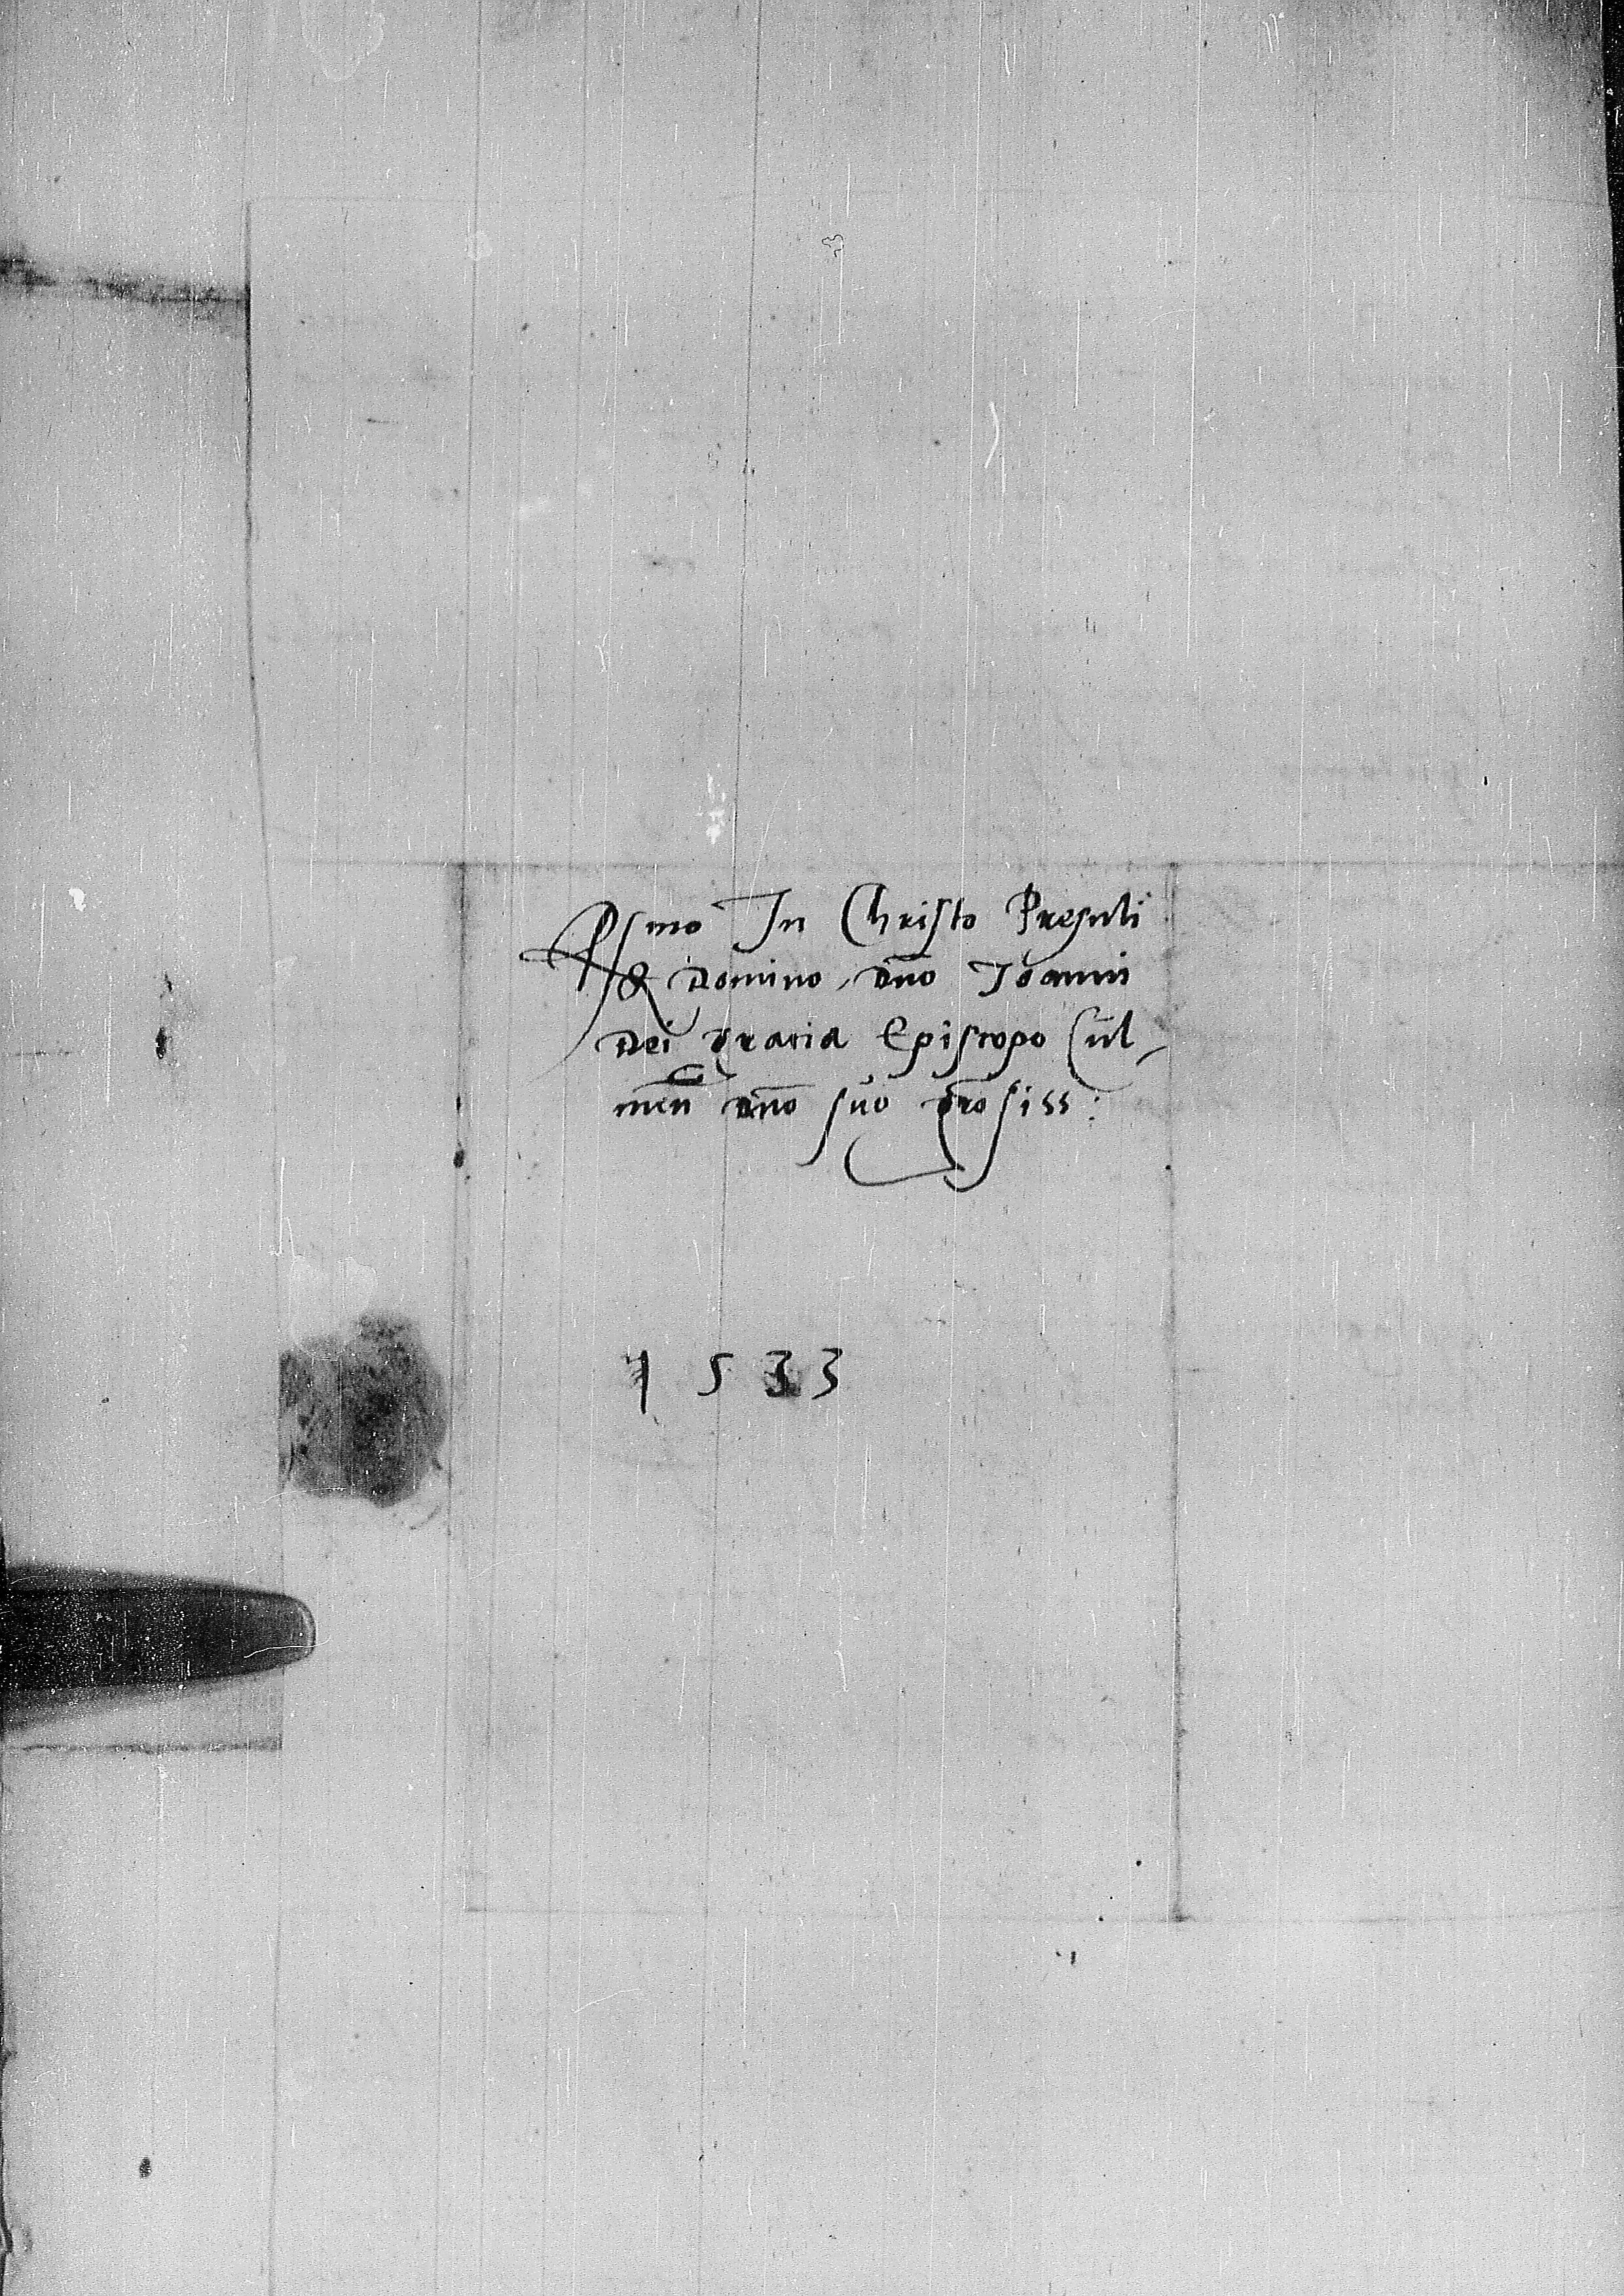 Rsmo In Christo Presuli
& Domino, dno Joanni
Dei gracia Episcopo Cul,
men̄ dno suo grosiss:
1533